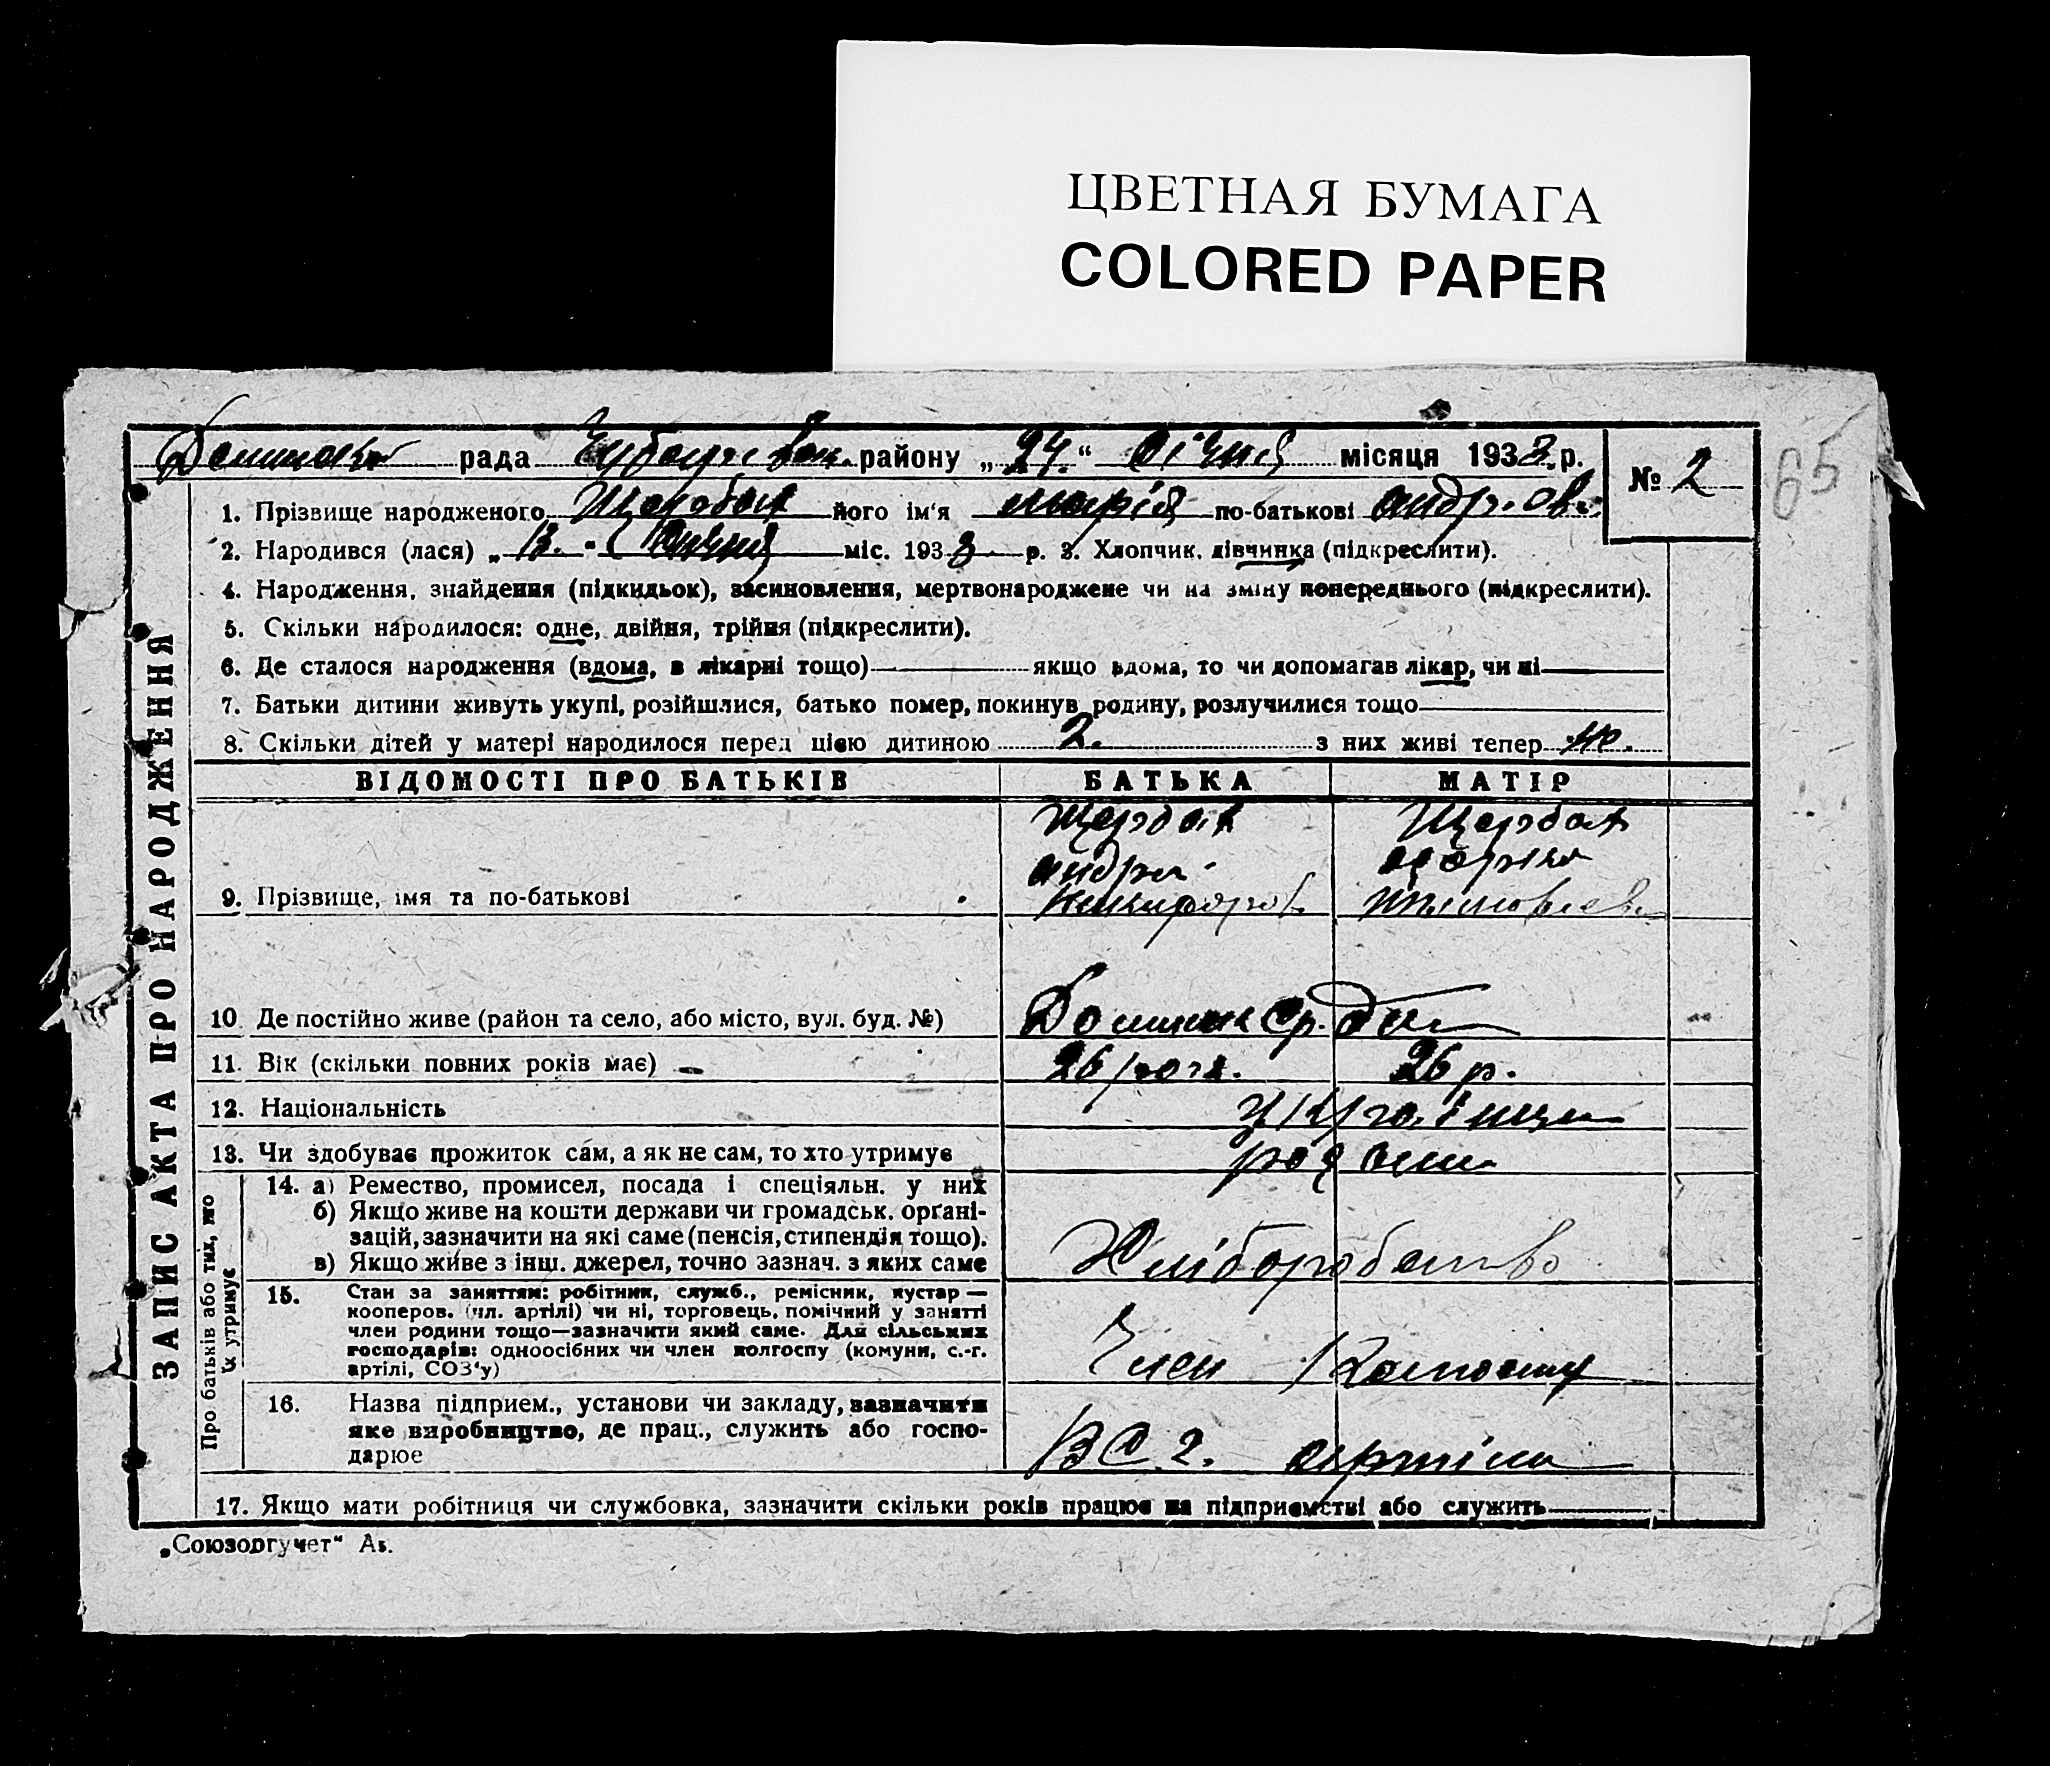 ЦВЕТНАЯ БУМАГА
COLORED PAPER
рада районy „24.“ січня місяця 1933.р.
№ 2
65
ЗАПИС АКТА ПРО НАРОДЖЕННЯ
1. Прізвище народженого Щербак його ім'я марія по-батькові андр. ов.
2. Народився (лася) „13.“ січня міс. 1933 р. 3. Хлопчик, дівчинка (підкреслити).
4. Народження, знайдення (підкидьок), засиновлення, мертвонароджене чи на зміну попереднього (підкреслити).
5. Скільки народилося: одне, двійня, трійня (підкреслити).
6. Де сталося народження (вдома, в лікарні тощо) якщо вдома, то чи допомагав лікар, чи ні
7. Батьки дитини живуть укупі, розійшлися, батько помер, покинув родину, розлучилися тощо
8. Скільки дітей у матері народилося перед цією дитиною 2. з них живі тепер
ВІДОМОСТІ ПРО БАТЬКІВ БАТЬКА МАТІР
Щербак Щербак
андрій
9. Прізвище, імя та по-батькові
10 Де постійно живе (район та село, або місто, вул. буд. №)
11. Вік (скільки повних років має) 26 26 р.
12. Національність українци
13. Чи здобуває прожиток сам, а як не сам, то хто утримує
Про батьків або тих, що їх утримує
14. а) Ремество, промисел, посада і спеціяльн. у них
б) Якщо живе на кошти держави чи громадськ. організацій, зазначити на які саме (пенсія, стипендія тощо).
в) Якщо живе з інш. джерел, точно зазнач. з яких саме
Хліборобство
15. Стан за заняттям: робітник, служб., ремісник, кустар—
кооперов. (чл. артілі) чи ні, торговець, помічний у занятті
член родини тощо—зазначити який саме. Для сільських
господарів: одноосібних чи член колгоспу (комуни, с.-г.
артілі, СОЗ'у)
Член Колгоспу
16. Назва підприєм., установи чи закладу, зазначити
яке виробництво, де прац., служить або госпо-
дарює
артіли
17. Якщо мати робітниця чи службовка, зазначити скільки років працює на підприємстві або служить
„Союзоргучет“